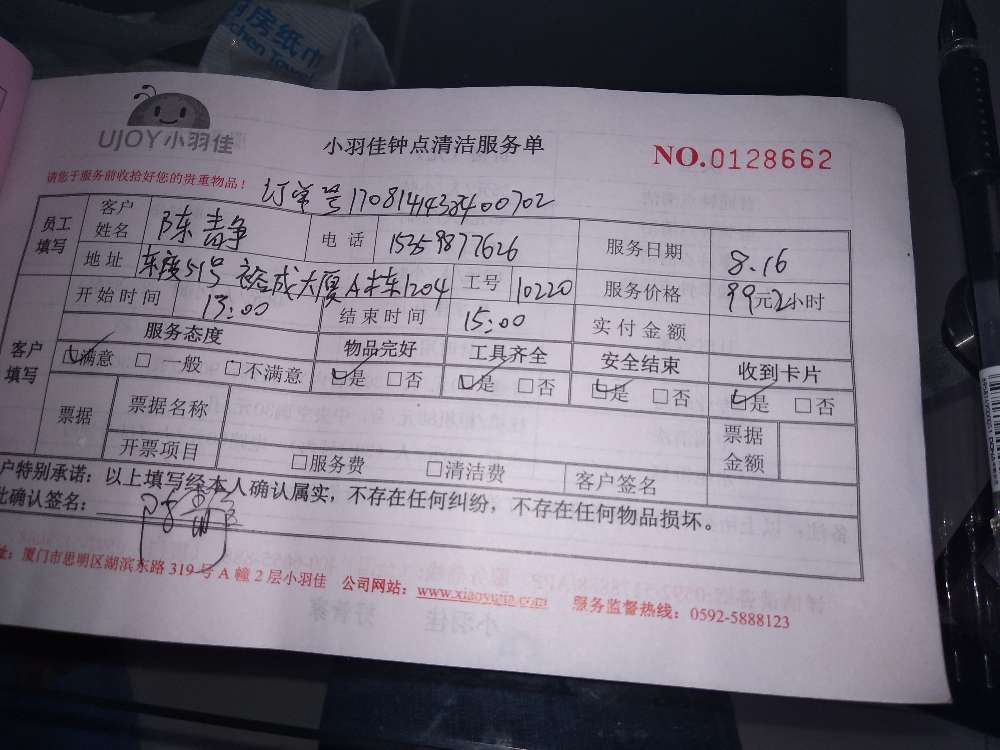 厨房纸巾
UJOY小羽佳
小羽佳钟点清洁服务单
NO.0128662
请您于服务前收拾好您的贵重物品！
订单号
员工填写 客户姓名 陈青净 电话 15359877626 服务日期 8.16
地址 东渡51号 裕成大厦A栋1204 工号 10220 服务价格 99元2小时
开始时间 13:00 结束时间 15:00 实付金额
客户填写 服务态度 物品完好 工具齐全 安全结束 收到卡片
☑满意 □一般 □不满意 ☑是 □否 ☑是 □否 ☑是 □否 ☑是 □否
票据 票据名称 票据金额
开票项目 □服务费 □清洁费 客户签名
户特别承诺：以上填写经本人确认属实，不存在任何纠纷，不存在任何物品损坏。
此确认签名：
址：厦门市思明区湖滨东路319号A幢2层小羽佳 公司网站：www.xiaoyujia.com 服务监督热线：0592-5888123